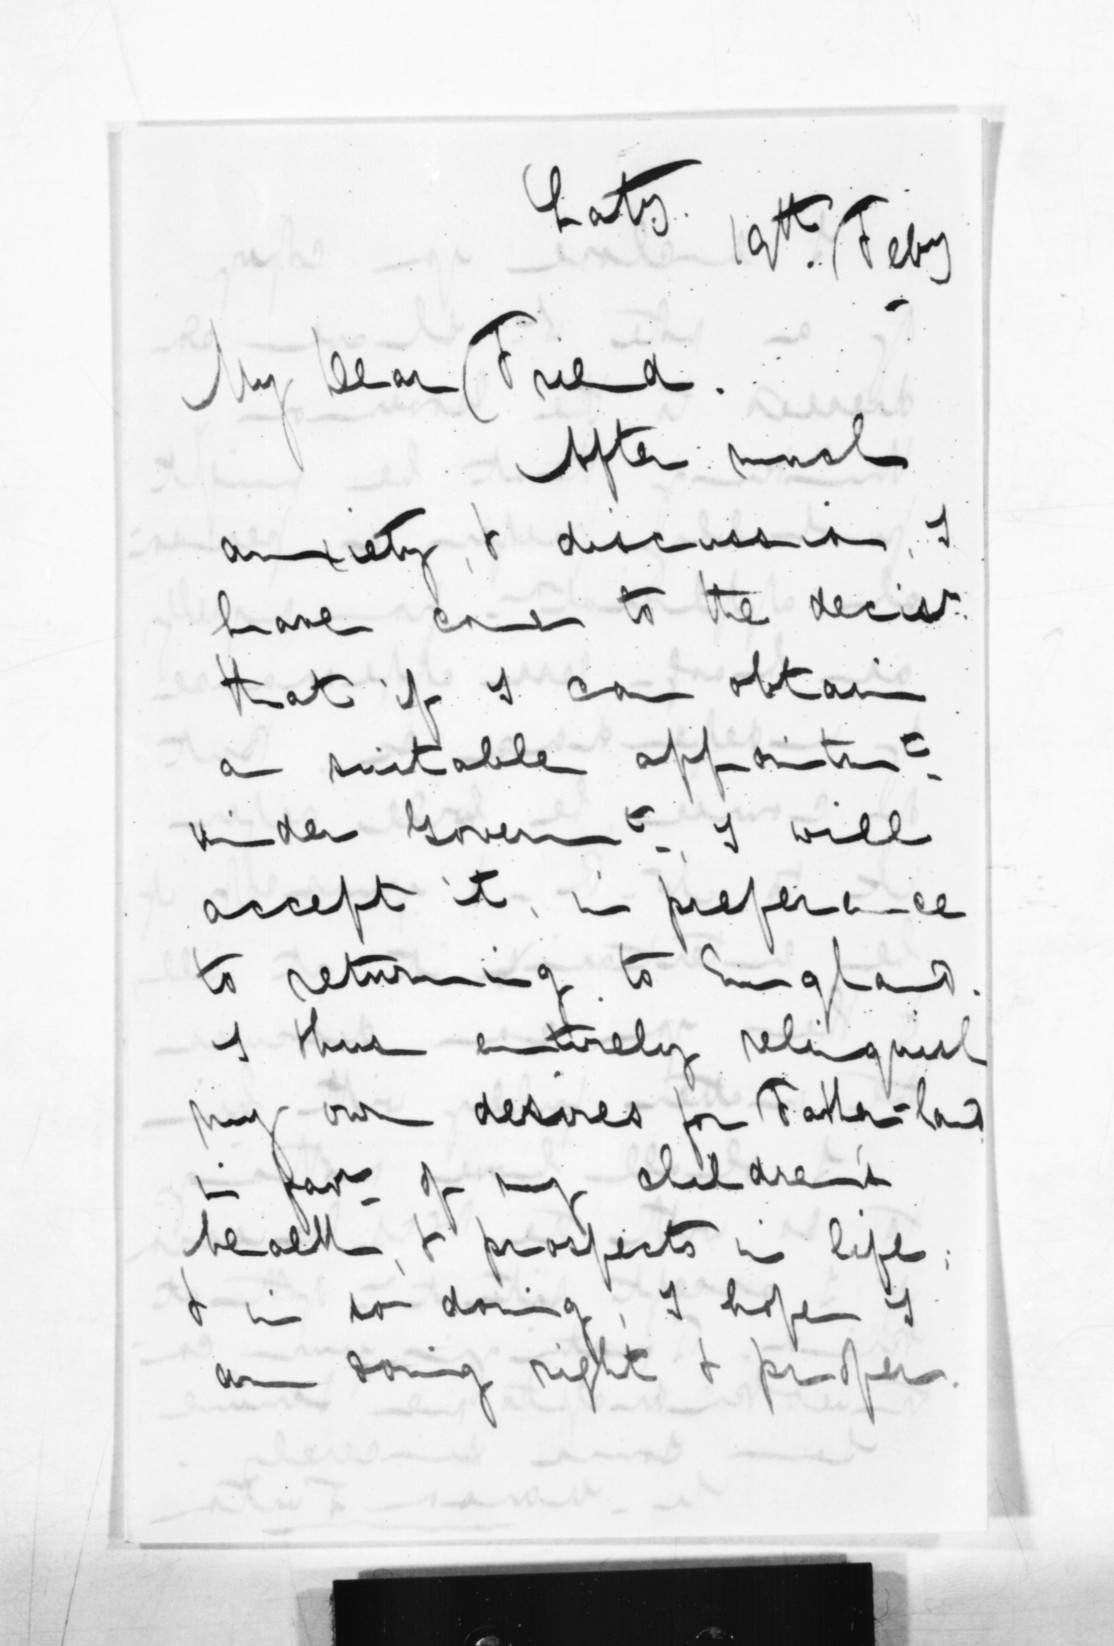 Saty. 19th. Feby
My Dear Friend.
After much
anxiety, & discussion, I
have come to the decisn.
that if I can obtain
a suitable appointmt.
under Governmt., I will
accept it, in preference
to returning to England.
I thus entirely relinquish
my own desires for Father-land
in favr. of my children's
health, & prospects in life;
& in so doing, I hope I
am doing right & proper.